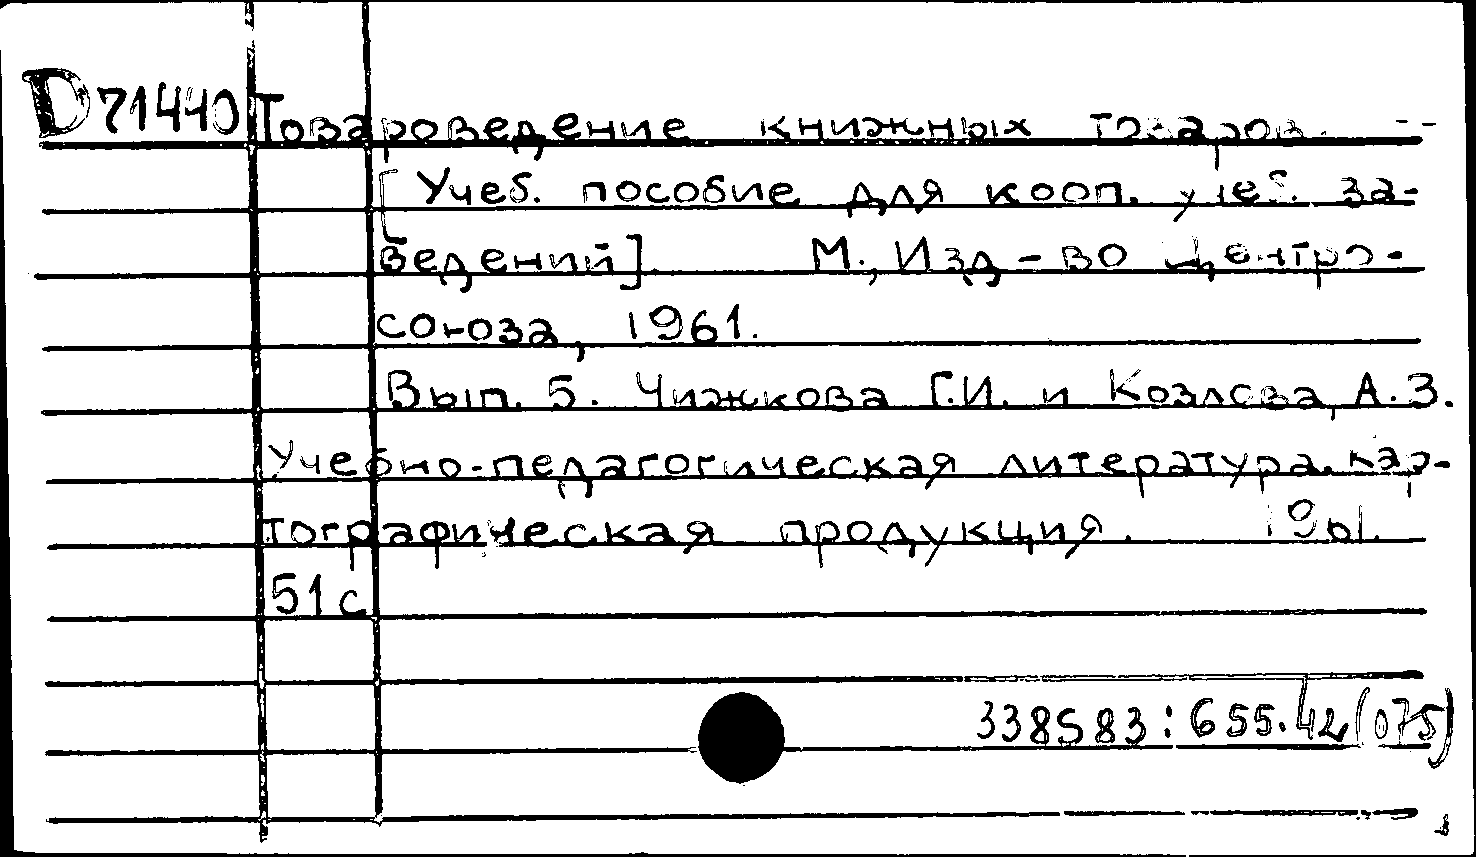 D 71440 Товароведение книжных товаров. --
[Учеб. пособие для кооп. учеб. за-
ведений]. М., Изд-во Центро-
союза, 1961.
Вып. 5. Чижкова Г.И. и Козлова, А.З.
Учебно-педагогическая литература. кар-
тографическая продукция. 1961.
51 с
338S83:655.42(075)